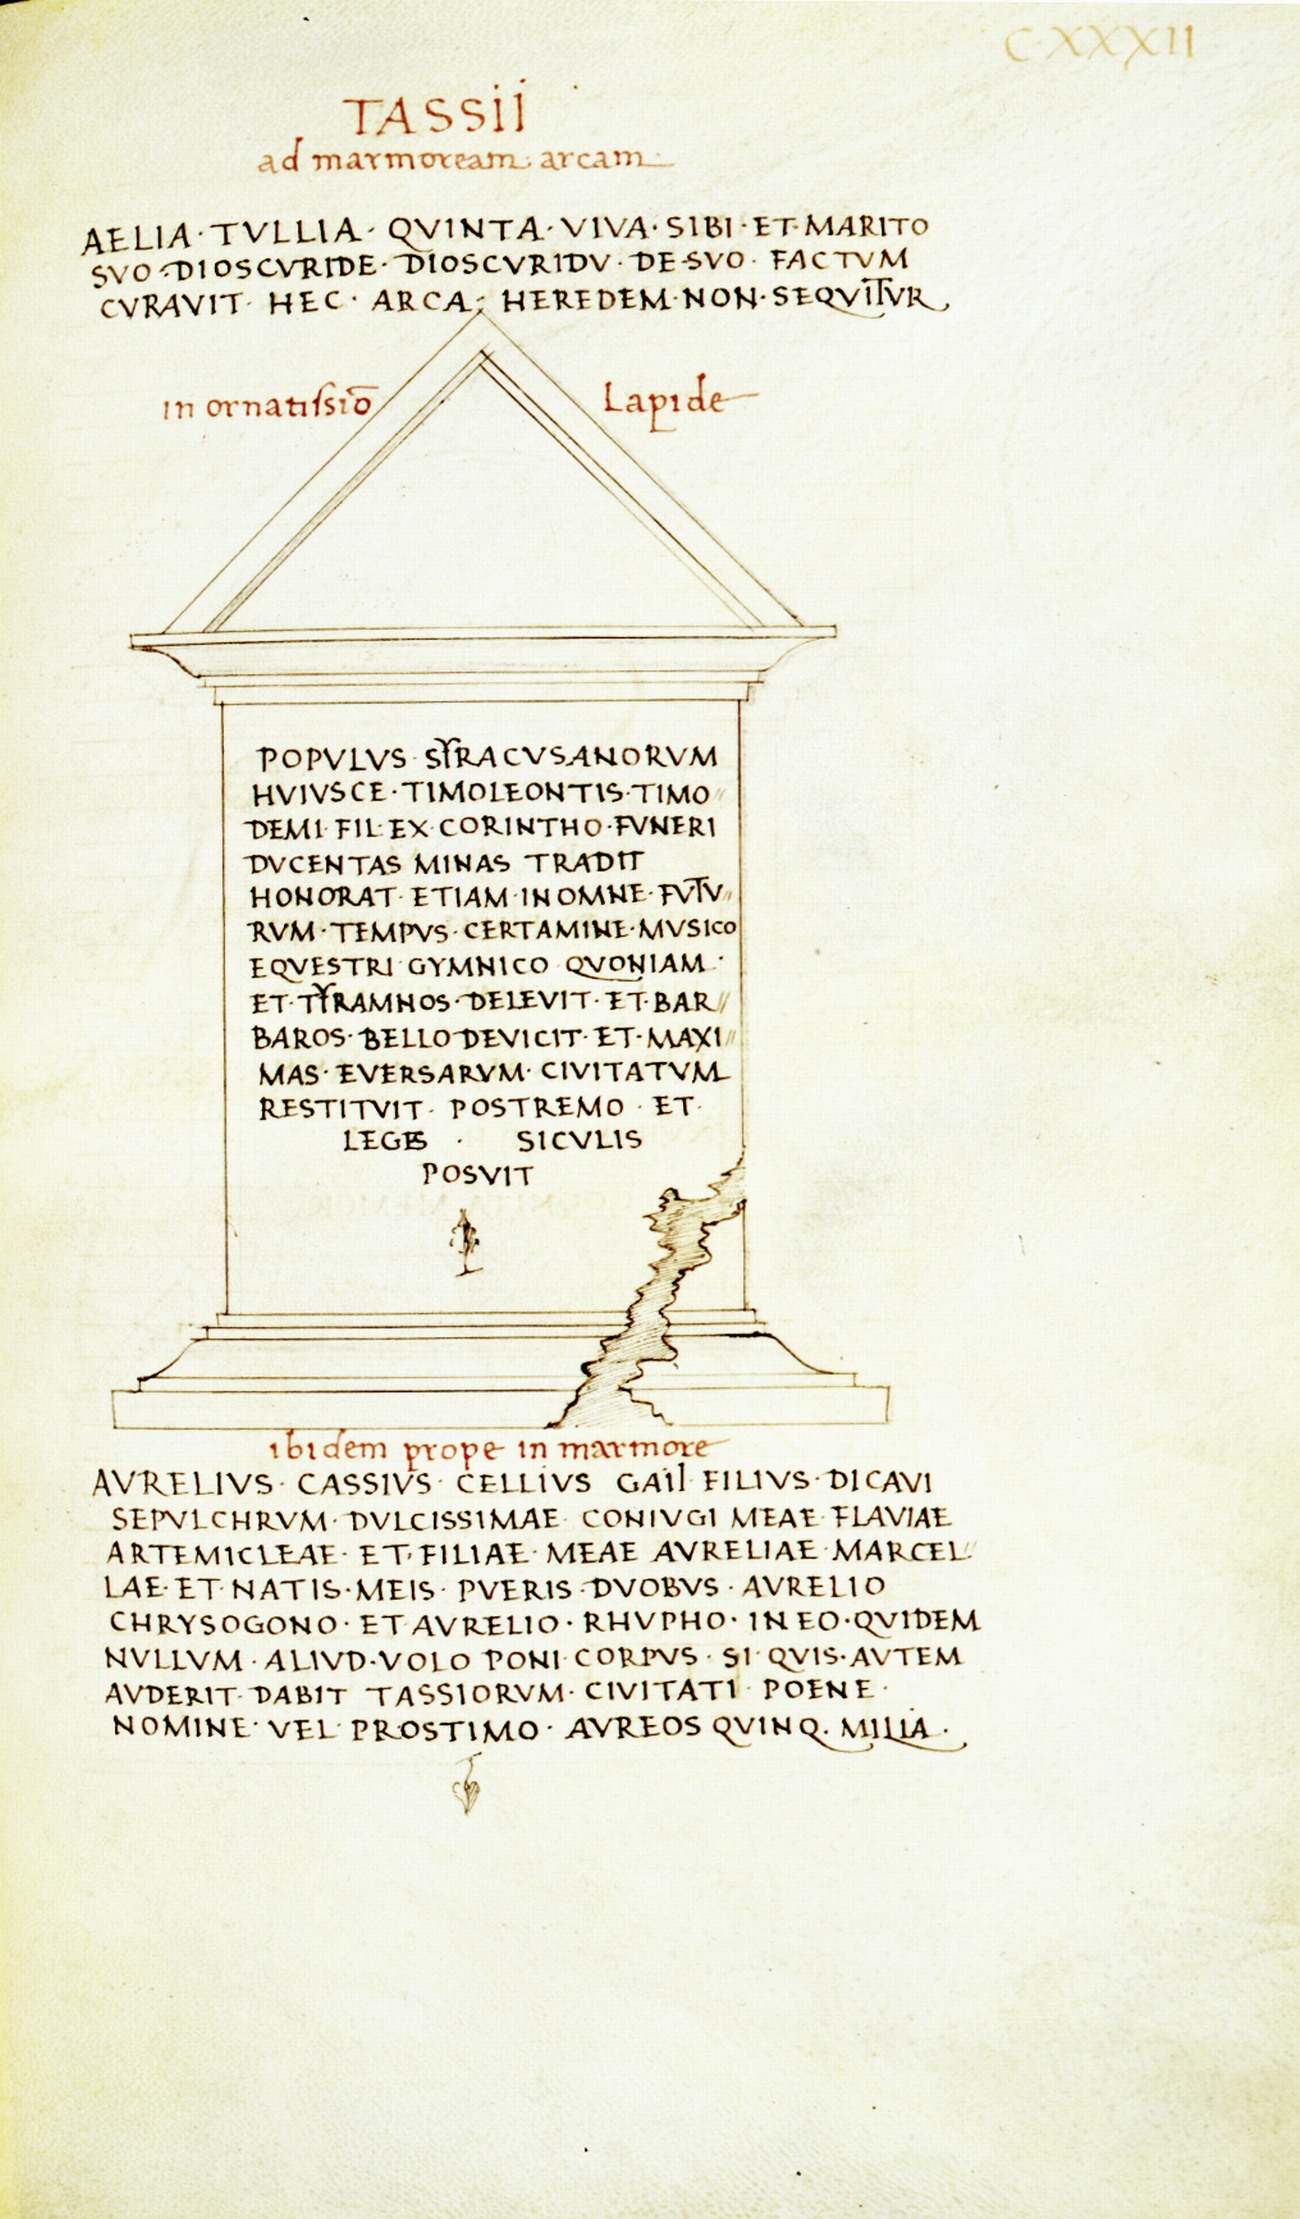 C·XXXII
TASSII
ad marmoream arcam
AELIA · TVLLIA · QVINTA · VIVA · SIBI · ET · MARITO
SVO · DIOSCVRIDE · DIOSCVRIDV · DE · SVO · FACTVM
CVRAVIT · HEC · ARCA; HEREDEM · NON · SEQVITVR
in ornatissiō Lapide
POPVLVS · SYRACVSANORVM
HVIVSCE · TIMOLEONTIS · TIMO//
DEMI · FIL · EX · CORINTHO · FVNERI
DVCENTAS MINAS TRADIT
HONORAT · ETIAM · IN OMNE · FVTV//
RVM · TEMPVS · CERTAMINE · MVSICO
EQVESTRI GYMNICO QVONIAM ·
ET · TYRAMNOS · DELEVIT · ET · BAR//
BAROS · BELLO DEVICIT · ET · MAXI//
MAS · EVERSARVM · CIVITATVM
RESTITVIT · POSTREMO · ET ·
LEGES · SICVLIS
POSVIT
ibidem prope in marmore
AVRELIVS · CASSIVS · CELLIVS GAII FILIVS · DICAVI
SEPVLCHRVM · DVLCISSIMAE CONIVGI MEAE FLAVIAE
ARTEMICLEAE · ET · FILIAE · MEAE AVRELIAE · MARCEL//
LAE · ET · NATIS · MEIS · PVERIS · DVOBVS · AVRELIO
CHRYSOGONO · ET AVRELIO · RHVPHO · IN EO · QVIDEM
NVLLVM · ALIVD · VOLO PONI CORPVS · SI QVIS · AVTEM
AVDERIT · DABIT TASSIORVM · CIVITATI POENE ·
NOMINE · VEL PROSTIMO · AVREOS QVINQ. MILIA ·